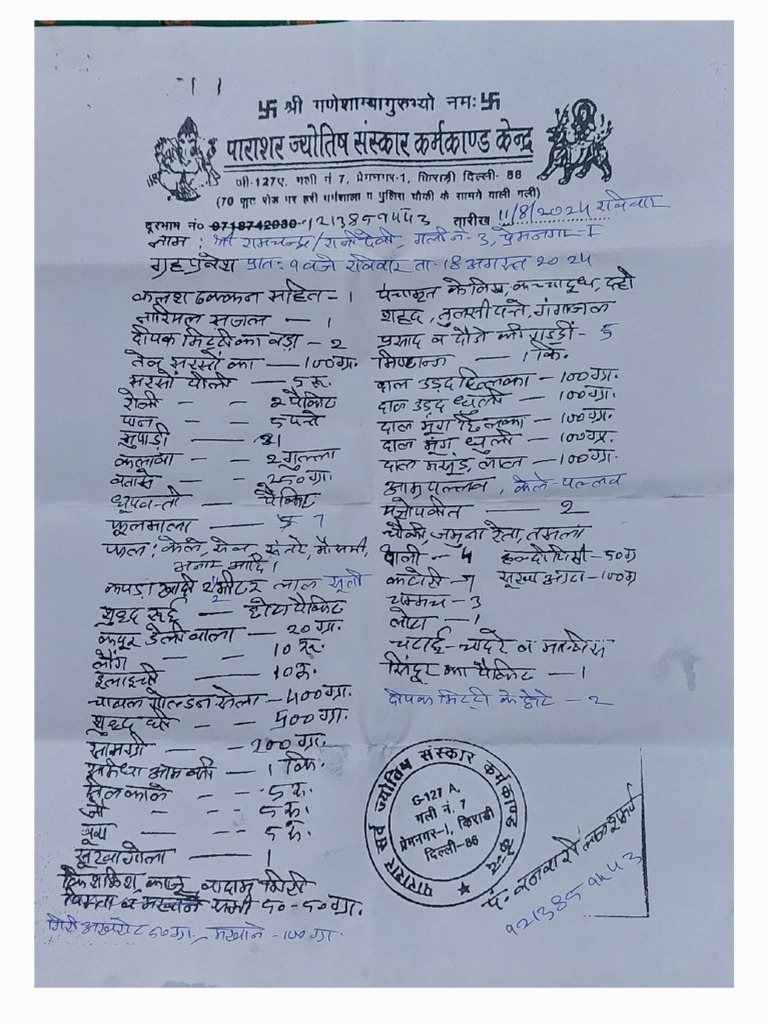 卐 श्री गणेशाम्बागुरुभ्यो नमः 卐
पाराशर ज्योतिष संस्कार कर्मकाण्ड केन्द्र
जी-127ए, गली नं 7, प्रेमनगर-1, किराड़ी दिल्ली-86
(70 फुट रोड पर हरी धर्मशाला व पुलिस चौकी के सामने वाली गली)
दूरभाष नं० 9718742930 9213859443 तारीख 11/8/2024 रविवार
नाम : श्री रामचन्द्र/रानीदेवी, गली नं-3, प्रेमनगर-I
गृह प्रवेश प्रातः 9 वजे रविवार ता-18 अगस्त 2024
कलश ढक्कन सहित - 1
नारियल सजल - 1
दीपक मिट्टी का बड़ा - 2
तेल सरसों का - 100 ग्रा.
सरसों पीली - 5 रू.
रोली - - 2 पैकिट
पान - - 5 पत्ते
सुपाड़ी - 21
कलावा - 2 गुल्ला
वतासे - 250 ग्रा.
धूपवत्ती - पैकिट
फूलमाला - 7
फल : केले, सेव, संतरे, मौसमी,
अनार आदि।
कपड़ा खादी 2 मीटर लाल सूती
शुद्ध रूई - छोटा पैकिट
कपूर डेलीवाला - 20 ग्रा.
लौंग - - 10 रू.
इलाइची - 10 रू.
चावल गोल्डन सेला - 400 ग्रा.
शुद्ध घी - - 500 ग्रा.
सामग्री - - 200 ग्रा.
समिधा आम की - 1 कि.
तिल काले - - 5 रू.
जौ - - 5 रू.
बूरा - - 5 रू.
सूखा गोला - 1
किशमिश, काजू, वादाम गिरी
पिस्ता व मखाने सभी 50-50 ग्रा.
गिरी अखरोट 50 ग्रा., मखाने - 100 ग्रा.
पंचामृत के लिए, कच्चा दूध, दही
शहद, तुलसी पत्ते, गंगाजल
प्रसाद व दौने की गड्डी - 5
मिष्ठान्न - 1 कि.
दाल उड़द छिलका - 100 ग्रा.
दाल उड़द धुली - 100 ग्रा.
दाल मूंग छिलका - 100 ग्रा.
दाल मूंग धुली - 100 ग्रा.
दाल मसूड़ लाल - 100 ग्रा.
आम्र पल्लव, केले-पल्लव
यज्ञोपवीत - 2
चौकी, जमुना रेता, तसला
थाली - 4 हल्दी पिसी - 50 ग्र
कटोरी - 7 सूखा आटा - 100 ग्र
चम्मच - 3
लोटा - 1
चटाई - चादरे व माचिस
सिंदूर का पैकिट - 1
दीपक मिट्टी के छोटे - 2
पाराशर सर्व ज्योतिष संस्कार कर्मकाण्ड केन्द्र
G-127 A,
गली नं. 7
प्रेमनगर-1, किराड़ी
दिल्ली-86
पं. वनवारी लाल शर्मा
9213859443